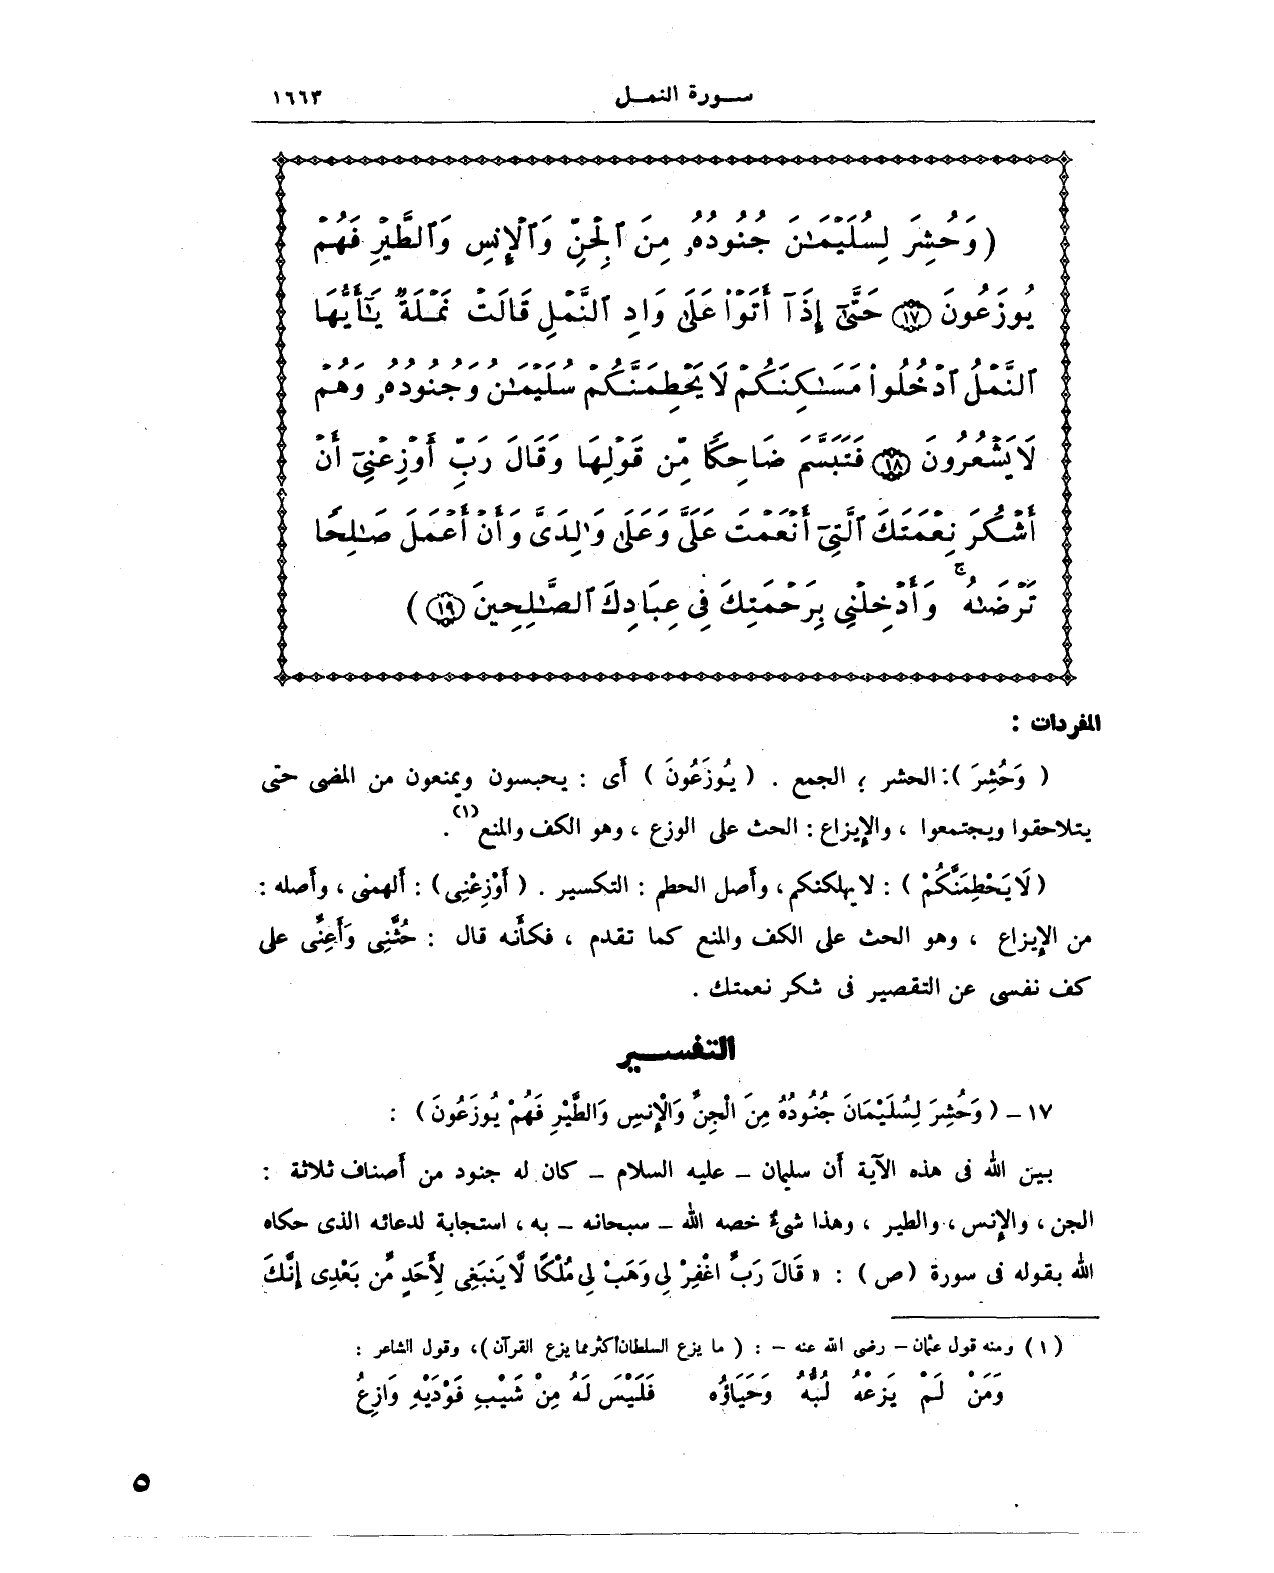 سورة النمل ١٦٦٣
(وَحُشِرَ لِسُلَيْمَٰنَ جُنُودُهُۥ مِنَ ٱلْجِنِّ وَٱلْإِنسِ وَٱلطَّيْرِ فَهُمْ
يُوزَعُونَ ١٧ حَتَّىٰٓ إِذَآ أَتَوْا۟ عَلَىٰ وَادِ ٱلنَّمْلِ قَالَتْ نَمْلَةٌ يَٰٓأَيُّهَا
ٱلنَّمْلُ ٱدْخُلُوا۟ مَسَٰكِنَكُمْ لَا يَحْطِمَنَّكُمْ سُلَيْمَٰنُ وَجُنُودُهُۥ وَهُمْ
لَا يَشْعُرُونَ ١٨ فَتَبَسَّمَ ضَاحِكًا مِّن قَوْلِهَا وَقَالَ رَبِّ أَوْزِعْنِىٓ أَنْ
أَشْكُرَ نِعْمَتَكَ ٱلَّتِىٓ أَنْعَمْتَ عَلَىَّ وَعَلَىٰ وَٰلِدَىَّ وَأَنْ أَعْمَلَ صَٰلِحًا
تَرْضَىٰهُ ۖ وَأَدْخِلْنِى بِرَحْمَتِكَ فِى عِبَادِكَ ٱلصَّٰلِحِينَ ١٩)
المفردات :
( وَحُشِرَ ): الحشر ؛ الجمع . ( يُوزَعُونَ ) أى : يحبسون ويمنعون من المضى حتى
يتلاحقوا ويجتمعوا ، والإيزاع : الحث على الوزع ، وهو الكف والمنع(١).
(لَا يَحْطِمَنَّكُمْ ) : لا يهلكنكم، وأصل الحطم : التكسير . (أَوْزِعْنِى) : ألهمنى ، وأصله :
من الإيزاع ، وهو الحث على الكف والمنع كما تقدم ، فكأنه قال : حُثَّنِى وَأَعِنِّى على
كف نفسى عن التقصير فى شكر نعمتك .
التفسير
١٧ – ( وَحُشِرَ لِسُلَيْمَانَ جُنُودُهُ مِنَ الْجِنِّ وَالْإِنسِ وَالطَّيْرِ فَهُمْ يُوزَعُونَ ) :
بين الله فى هذه الآية أن سليمان – عليه السلام – كان له جنود من أصناف ثلاثة :
الجن ، والإنس ، والطير ، وهذا شىءٌ خصه الله – سبحانه – به ، استجابة لدعائه الذى حكاه
الله بقوله فى سورة (ص ) : « قَالَ رَبِّ اغْفِرْ لِى وَهَبْ لِى مُلْكًا لَّا يَنبَغِى لِأَحَدٍ مِّن بَعْدِى إِنَّكَ
(١) ومنه قول عثمان – رضى الله عنه – : ( ما يزع السلطان أكثر مما يزع القرآن )، وقول الشاعر :
وَمَنْ لَمْ يَزَعْهُ لُبُّهُ وَحَيَاؤُه فَلَيْسَ لَهُ مِنْ شَيْبِ فَوْدَيْهِ وَازِعُ
٥